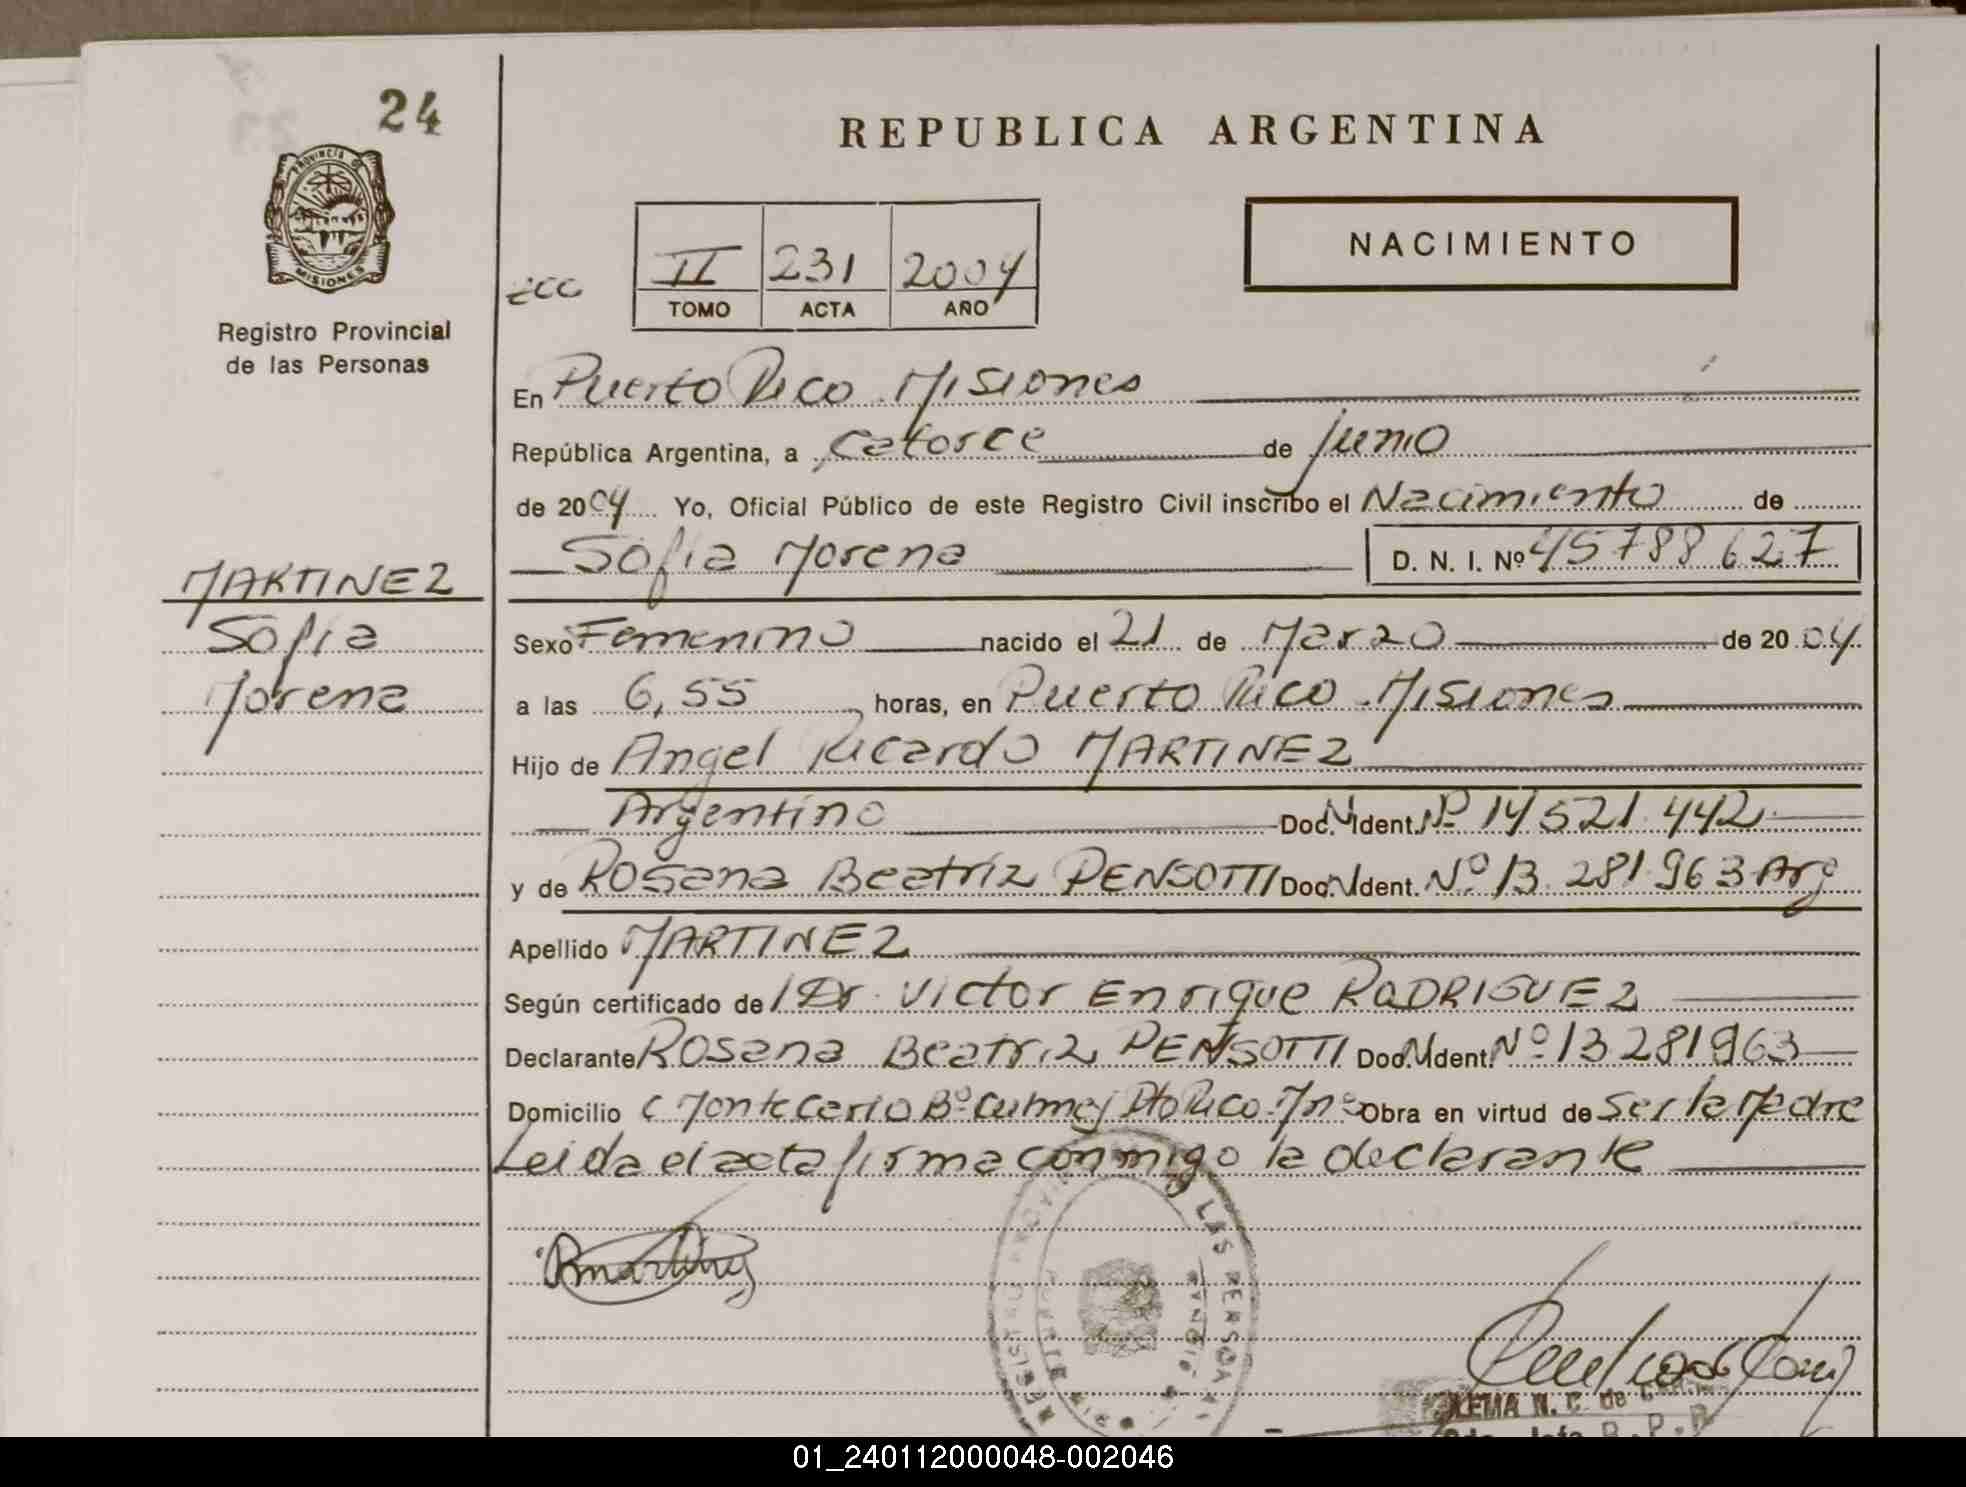 24
REPUBLICA ARGENTINA
PROVINCIA DE
MISIONES
Registro Provincial
de las Personas
II 231 2004
TOMO ACTA AÑO
NACIMIENTO
En Puerto Rico Misiones
República Argentina, a Catorce de junio
de 2004 Yo, Oficial Público de este Registro Civil inscribo el Nacimiento de
Sofia Morena D. N. I. Nº 45788627
MARTINEZ
Sofia
Morena
Sexo Femenino nacido el 21 de Marzo de 2004
a las 6,55 horas, en Puerto Rico Misiones
Hijo de Angel Ricardo MARTINEZ
Argentino Doc. N. Ident. Nº 14521.442
y de Rosana Beatriz PENSOTTI Doc. N. Ident. Nº 13.281.963 Arg
Apellido MARTINEZ
Según certificado de Dr. Victor Enrique RODRIGUEZ
Declarante Rosana Beatriz PENSOTTI Doc. N. Ident. Nº 13281963
Domicilio C Montecarlo Bº Pto Rico Mnes Obra en virtud de ser la Madre
Leida el acta firma conmigo la declarante
LAS PERSONAS
N. C. de
01_240112000048-002046